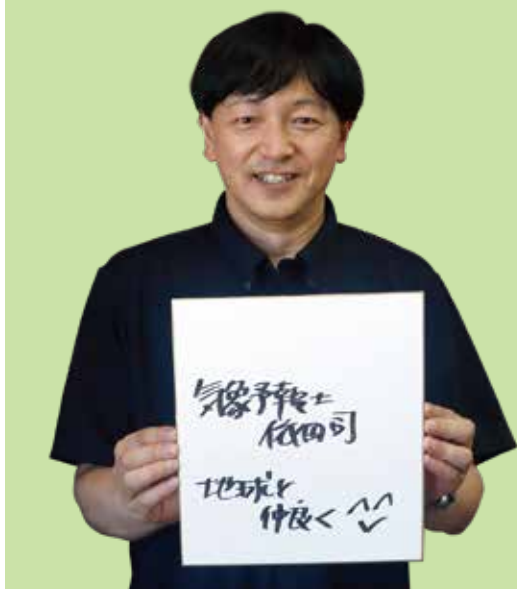 気象予報士
依田司
地球と
仲良く ^^